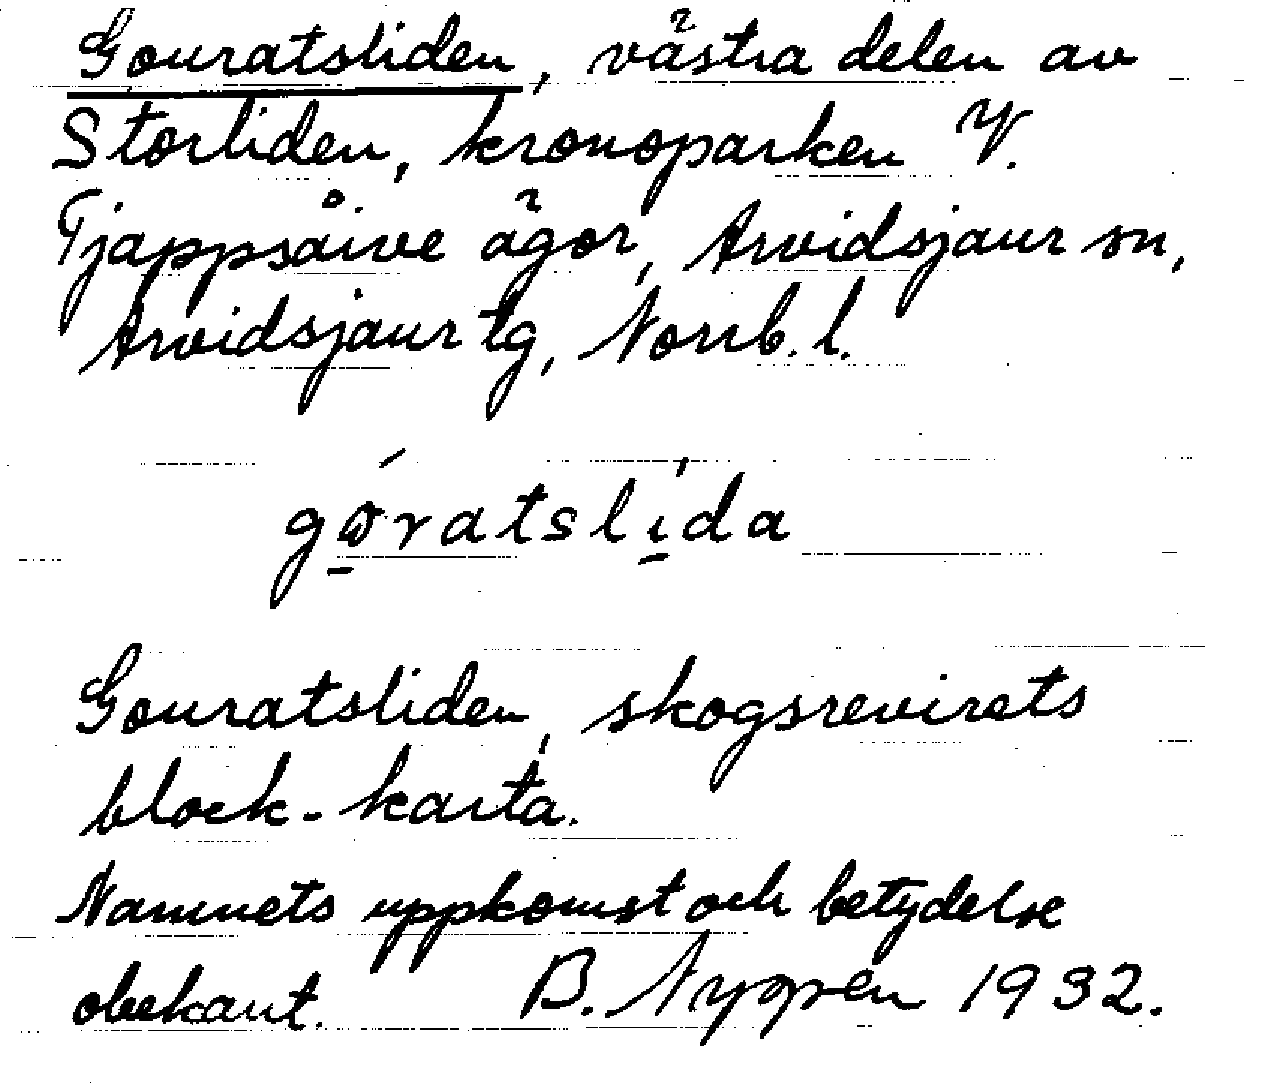 Gouratsliden, västra delen av
Storliden, kronoparken V.
Tjappsåive ägor, Arvidsjaur sn,
Arvidsjaur tg, Norrb. l.
góratslída
Gouratsliden, skogsrevirets
block-karta.
Namnets uppkomst och betydelse
obekant. B. Nygren 1932.